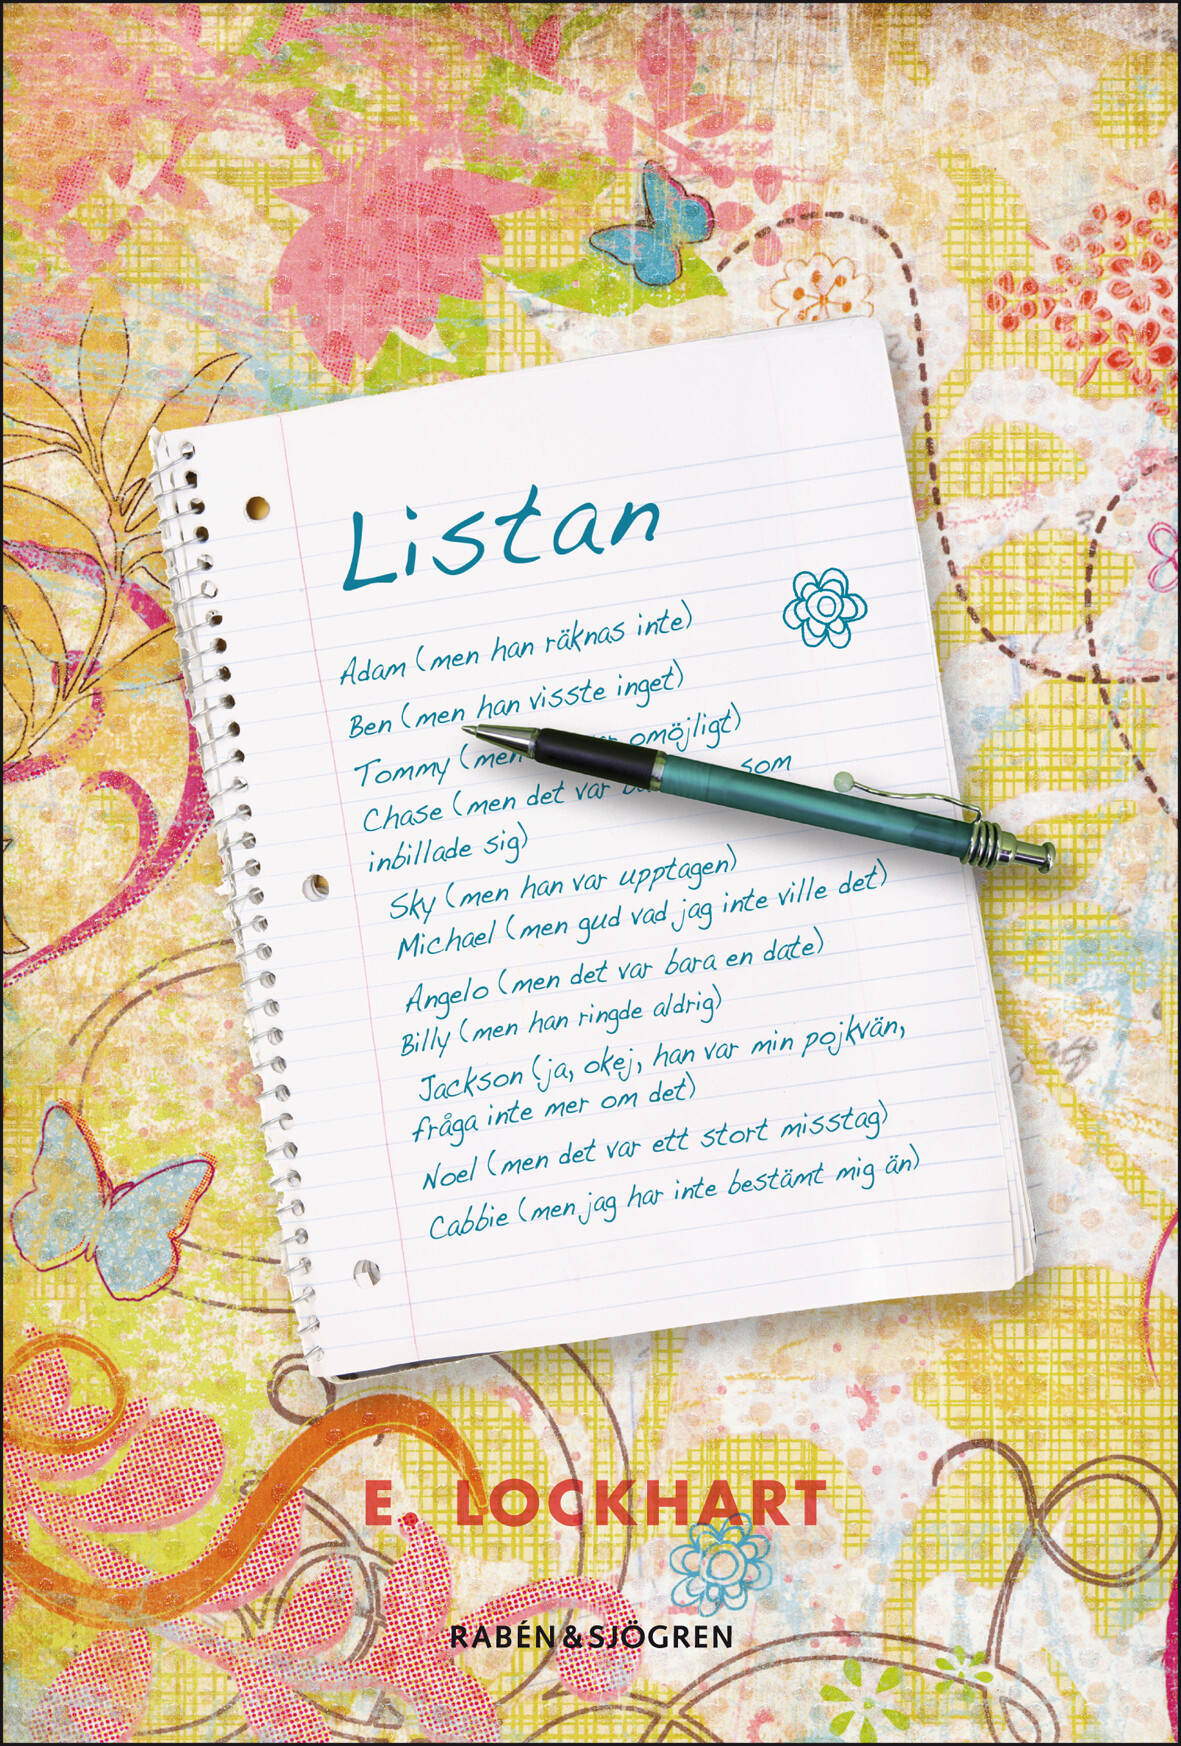 Listan
Adam (men han räknas inte)
Ben (men han visste inget)
Tommy (men omöjligt)
Chase (men det var som
inbillade sig)
Sky (men han var upptagen)
Michael (men gud vad jag inte ville det)
Angelo (men det var bara en date)
Billy (men han ringde aldrig)
Jackson (ja, okej, han var min pojkvän,
fråga inte mer om det)
Noel (men det var ett stort misstag)
Cabbie (men jag har inte bestämt mig än)
E. LOCKHART
RABÉN & SJÖGREN